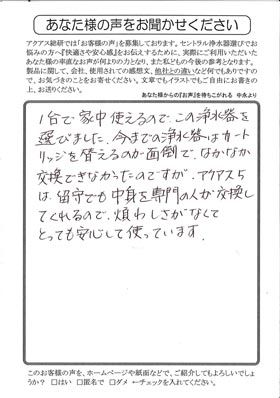 あなた様の声をお聞かせください
アクアス総研では「お客様の声」を募集しております。セントラル浄水器選びでお
悩みの方へ『快適さや安心感』をお伝えするために、実際にご利用いただいた
あなた様の率直なお声が何よりの力となり、また私どもの今後の参考となります。
製品に関して、会社、使用されての感想文、他社との違いなど何でもありですの
で、お気づきのことをお寄せください。文章でもイラストでもご自由にお書きの
上、お送りください。
あなた様からの『お声』を待ちこがれる 中永より
1台で家中使えるので、この浄水器を
選びました。今までの浄水器はカート
リッジを替えるのが面倒で、なかなか
交換できなかったのですが、アクアス5
は、留守でも中身を専門の人が交換し
てくれるので、煩わしさがなくて
とっても安心して使っています。
このお客様の声を、ホームページや紙面などで、ご紹介してもよろしいでしょ
うか? □はい □匿名で □ダメ ←チェックを入れてください。